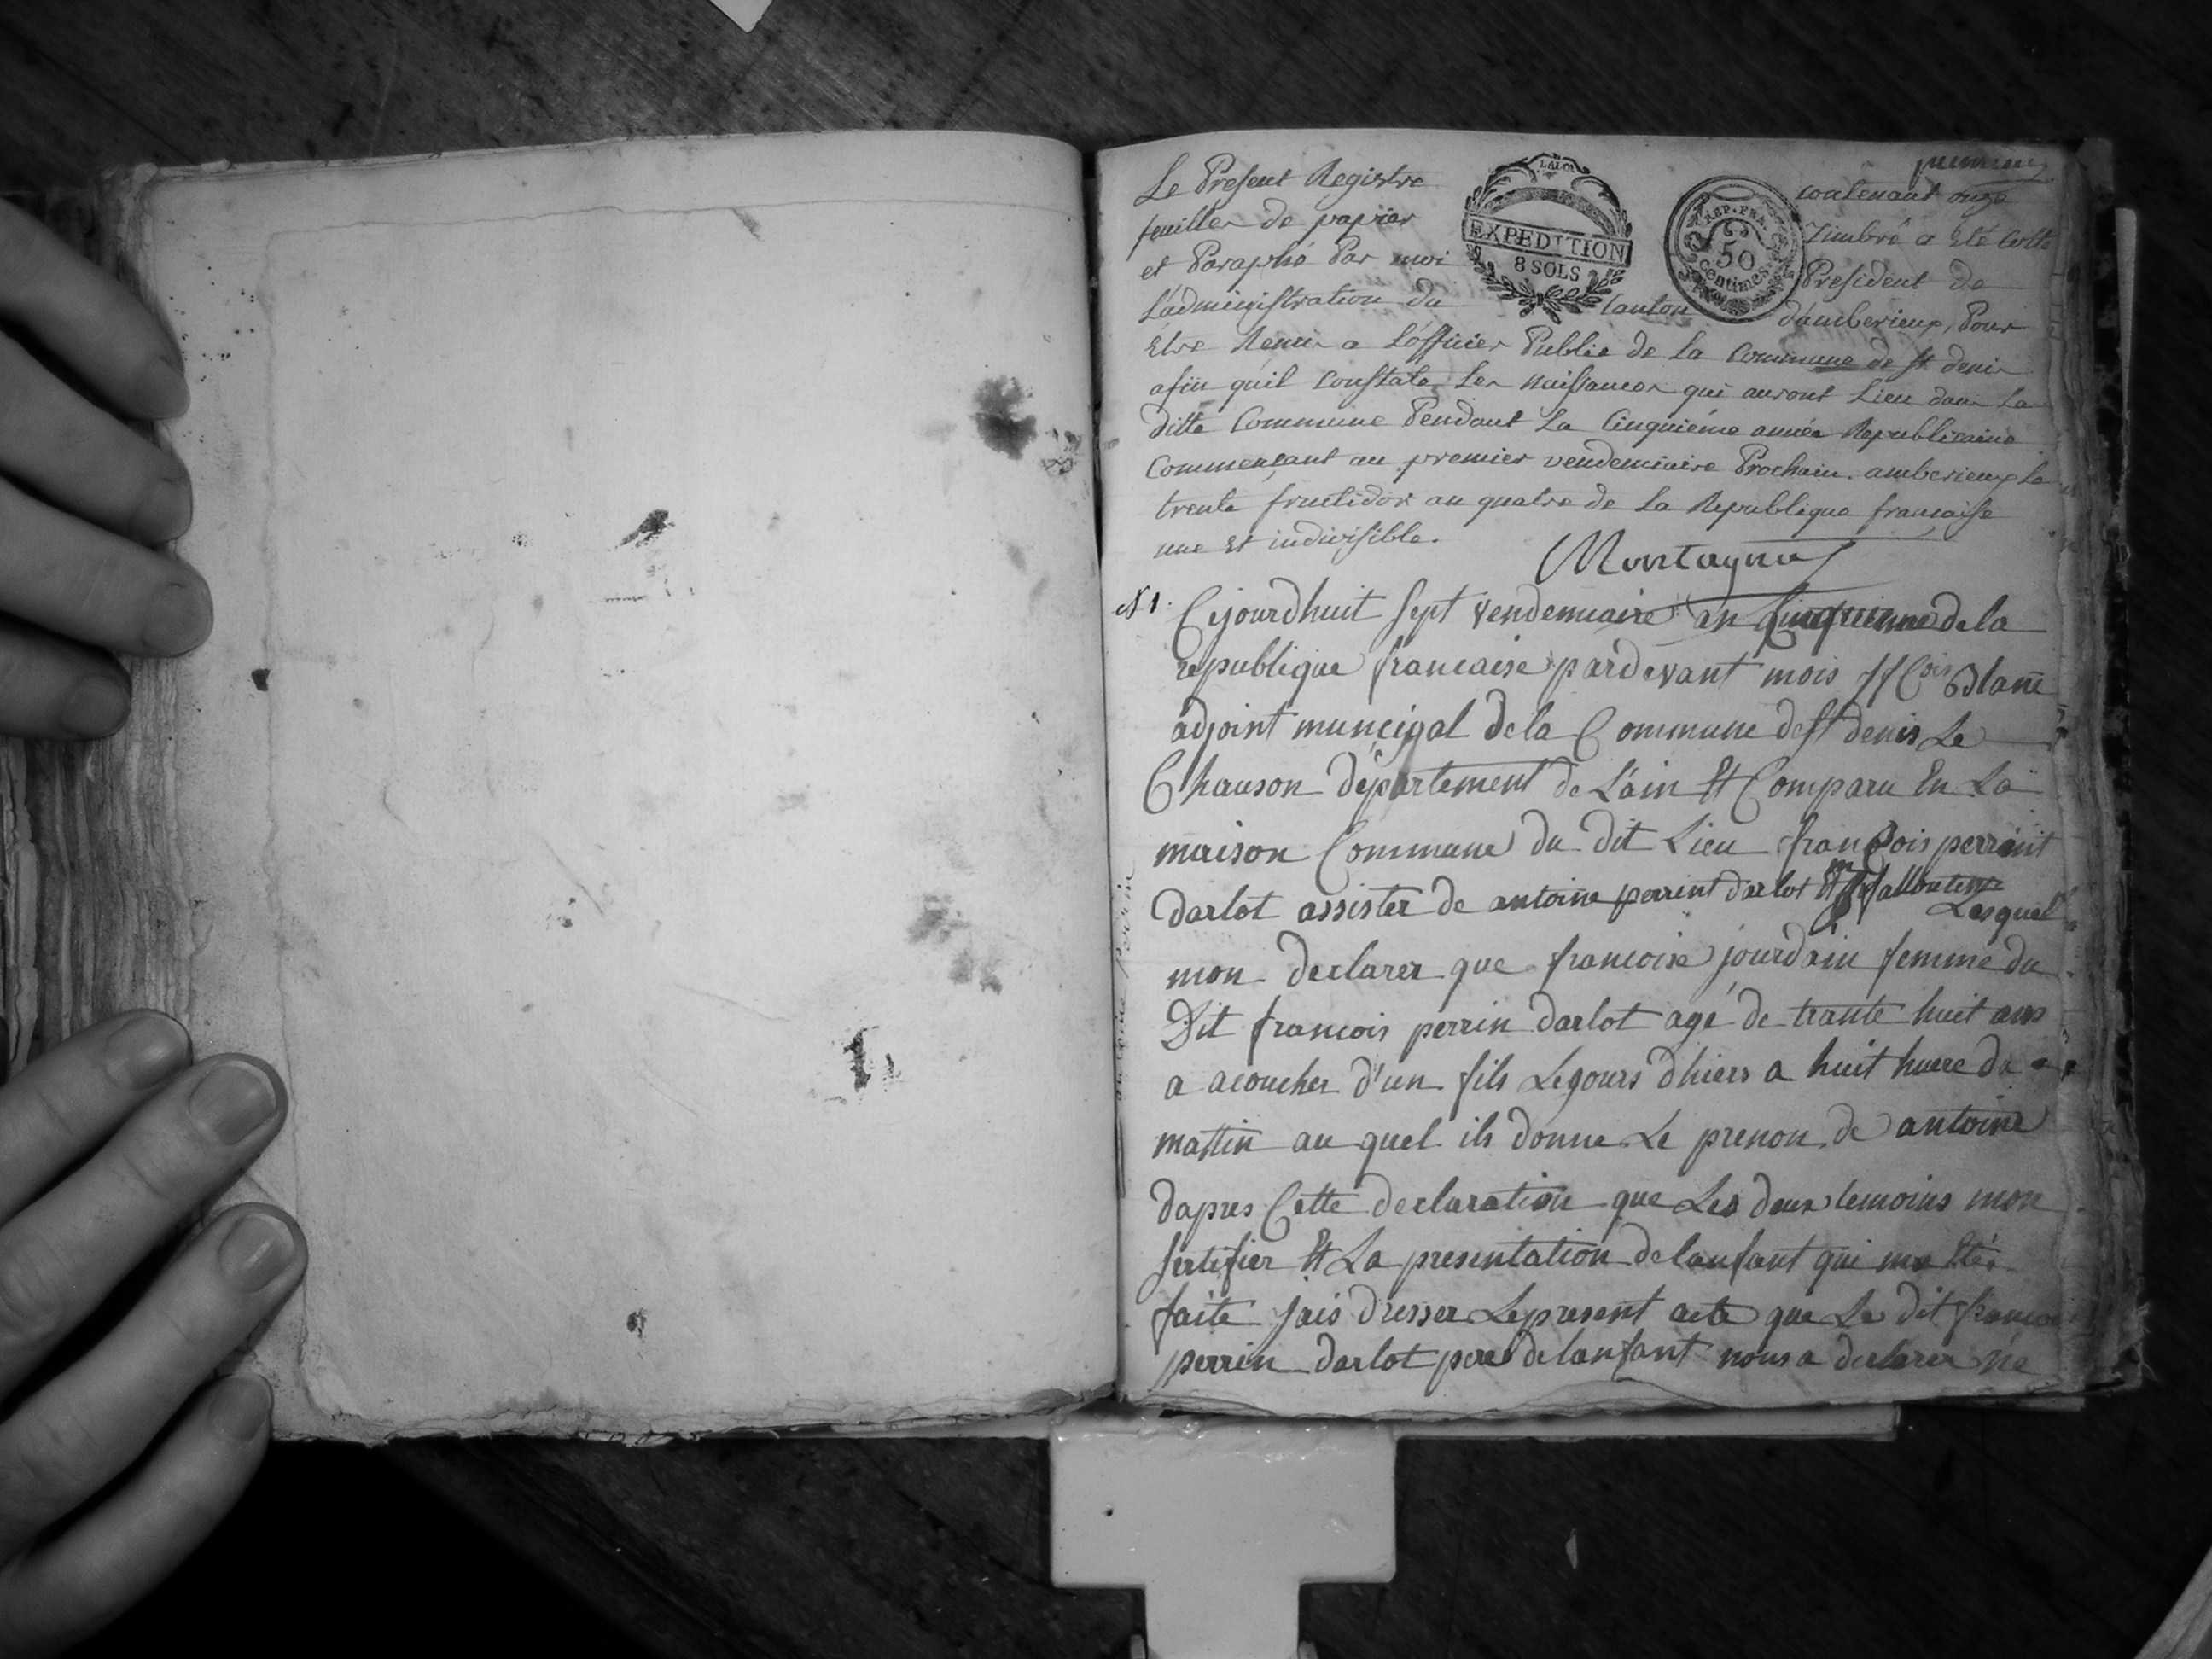 premier
Le Present Registre contenant onze
feuilles de papier Timbré a Eté Cotté
et Paraphé Par moi President de
L'administration du Canton d'amberieux, Pour
Etre Remis a L'officier Public de La Commune de St denis
afin qu'il Constate Les Naissances qui auront Lieu dans La
ditte Commune Pendant La Cinquiéme année Republicaine
Commençant au premier vendemiaire Prochain. amberieux Le
trente fructidor an quatre de La Republique francaise
une Et indivisible.
Montagnat
LA LOI
EXPEDITION
8 SOLS
REP. FRA.
50
centimes
N 1. Cejourdhuit sept vendemiaire an Cinquienme de la
republique francaise pardevant mois ffcois Blanc
adjoint muncipal de la Commune de st denis Le
Chauson département de L'ain Et Comparu En La
maison Commune du dit Lieu francois perrint
darlot assister de antoine perrint darlot Et
Lesquel
mon declarer que francoise jourdain femme du
Dit francois perrin darlot agé de trante huit ans
a acoucher d'un fils Le jours dhiers a huit huere du
mattin au quel ils donne Le prenon de antoine
dapres Cette declaration que Les deux temoins mon
sertifier Et La presentation de lanfant qui ma Eté
faite jais dresser Le present acte que Le dit francoi
perrin darlot pere de lanfant nous a declarer ne
perrin